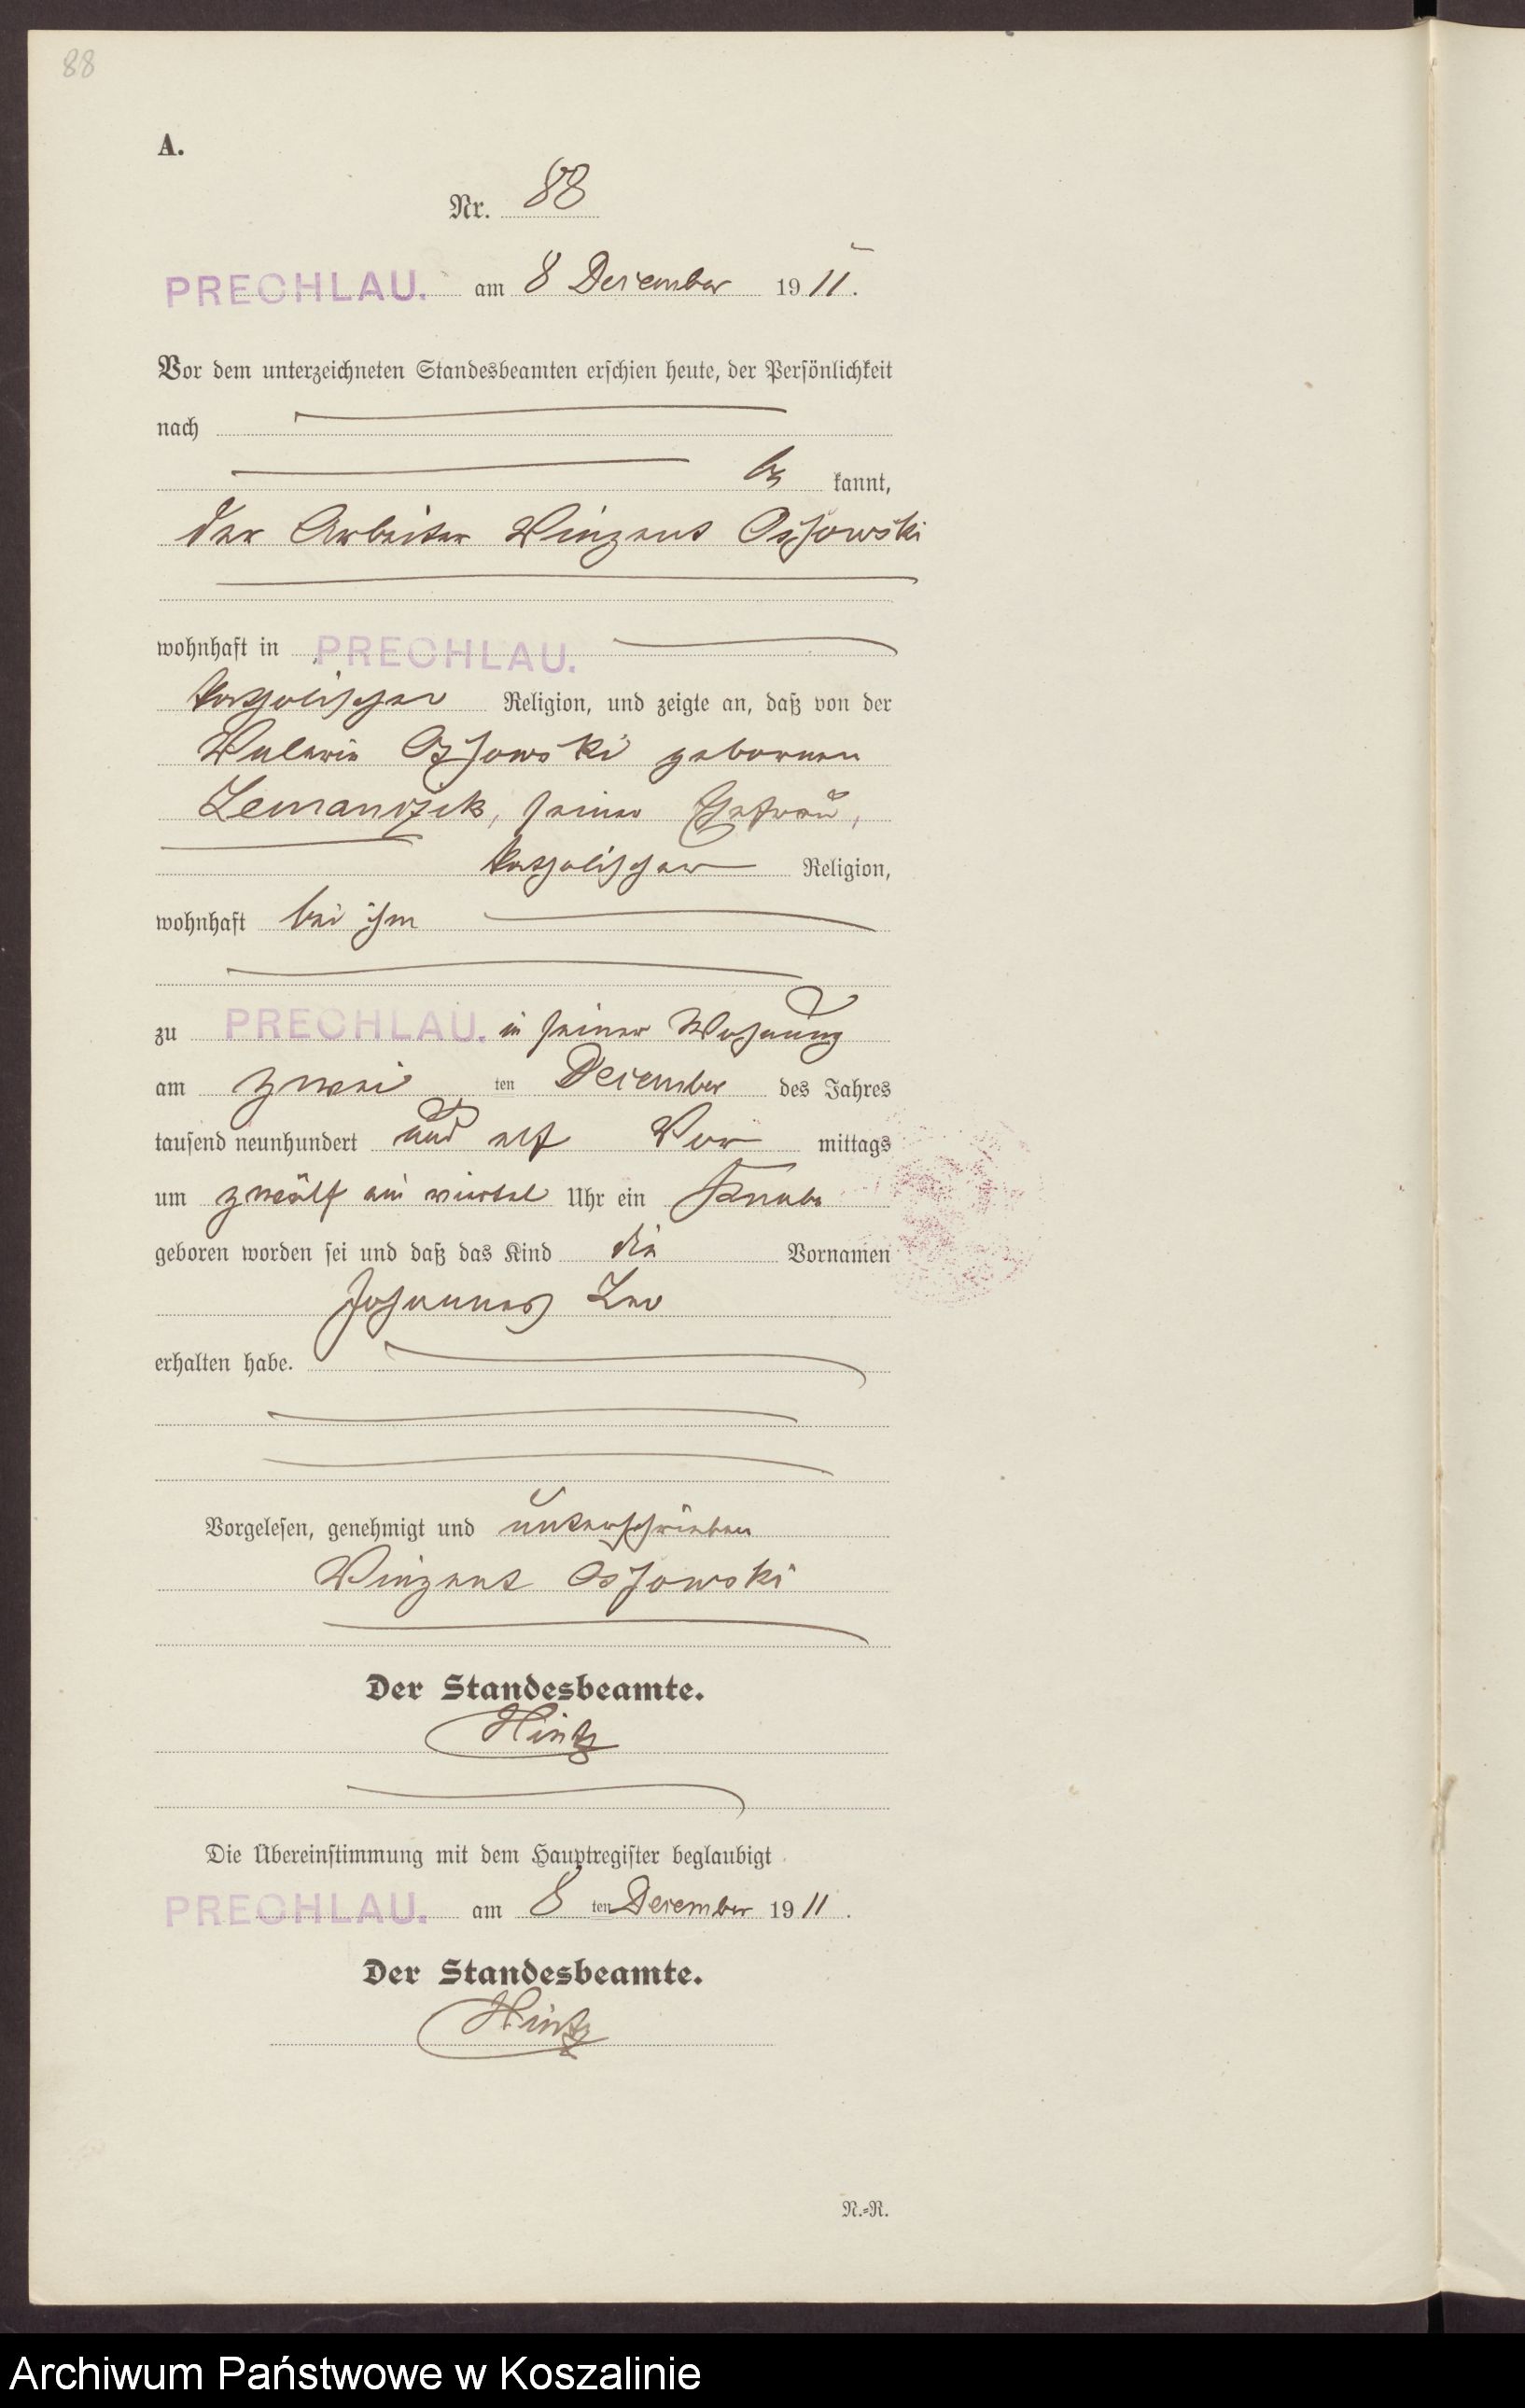 88
A.
Nr. 88
PRECHLAU. am 8 Dezember 19 11.
Vor dem unterzeichneten Standesbeamten erschien heute, der Persönlichkeit
nach
be kannt,
der Arbeiter Vinzent Ossowski
wohnhaft in PRECHLAU.
katholischer Religion, und zeigte an, daß von der
Valeria Ossowski gebornen
Lemanczik, seiner Ehefrau,
katholischer Religion,
wohnhaft bei ihm
zu PRECHLAU. in seiner Wohnung
am zwei ten Dezember des Jahres
tausend neunhundert und elf Vor mittags
um zwölf ein viertel Uhr ein Knabe
geboren worden sei und daß das Kind die Vornamen
Johannes Leo
erhalten habe.
Vorgelesen, genehmigt und unterschrieben
Vinzent Ossowski
Der Standesbeamte.
Hintz
Die Übereinstimmung mit dem Hauptregister beglaubigt
PRECHLAU. am 8 ten Dezember 19 11.
Der Standesbeamte.
Hintz
N.=R.
Archiwum Państwowe w Koszalinie